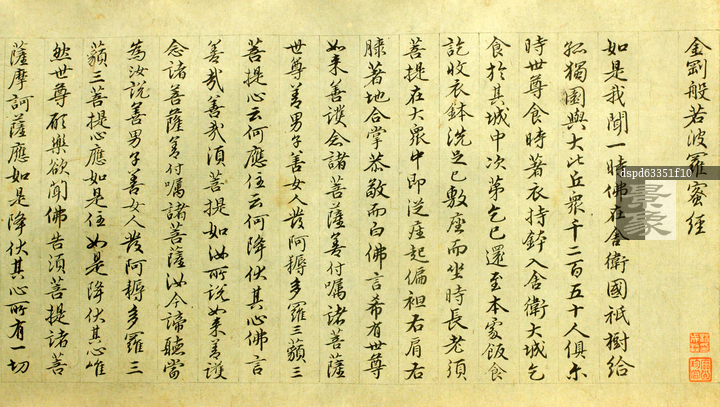 金剛般若波羅蜜經
如是我聞一時佛在舍衛國祇樹給
孤獨園與大比丘眾千二百五十人俱尒
時世尊食時著衣持鉢入舍衛大城乞
食於其城中次第乞已還至本處飯食
訖收衣鉢洗足已敷座而坐時長老須
菩提在大眾中即從座起偏袒右肩右
膝著地合掌恭敬而白佛言希有世尊
如来善護念諸菩薩善付嘱諸菩薩
世尊善男子善女人發阿耨多羅三藐三
菩提心云何應住云何降伏其心佛言
善哉善哉須菩提如汝所說如来善護
念諸菩薩善付嘱諸菩薩汝今諦聽當
為汝說善男子善女人發阿耨多羅三
藐三菩提心應如是住如是降伏其心唯
然世尊願樂欲聞佛告須菩提諸菩
薩摩訶薩應如是降伏其心所有一切
dspd63351f10